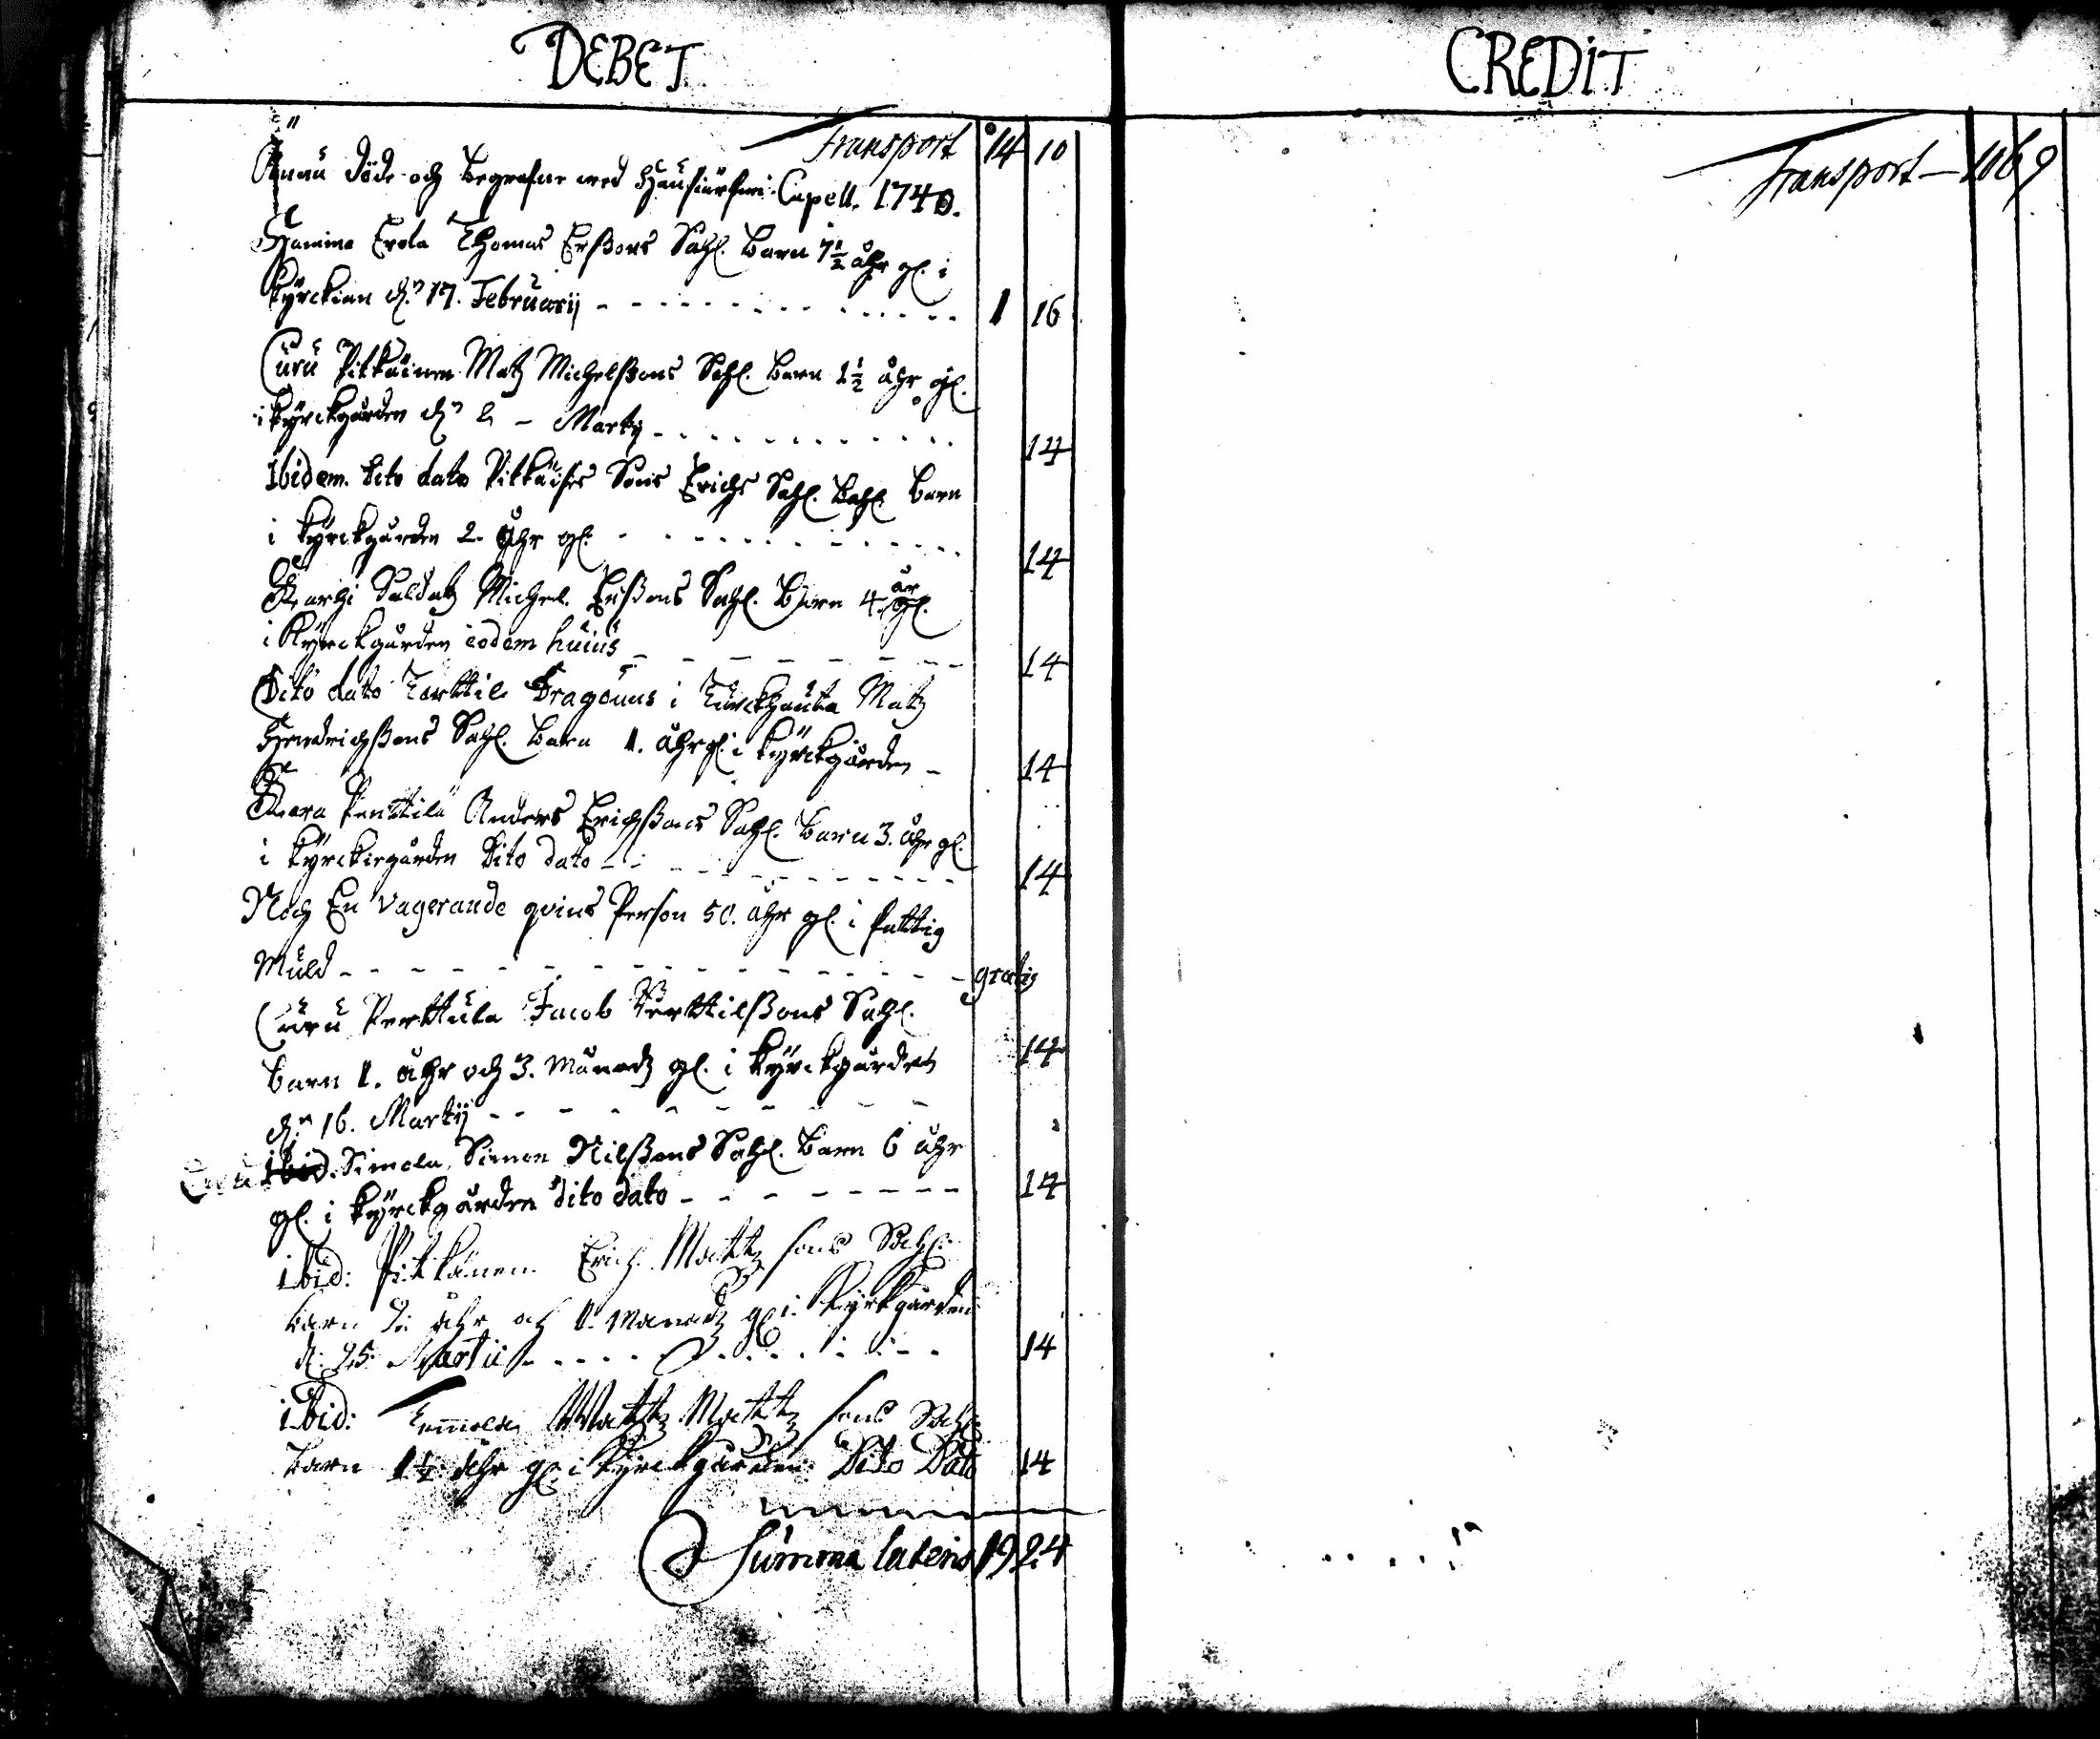 DEBET
Transport 14 10
Ännu döde och begrafne wed Hausjärfwi Capell. 1740.
Hamina Erola Thomas Erßons Sahl. barn 7½ åhr gl. i
kyrckian dn 17. Februarij 1 16
Curu Pitkäinen Matz Michelßons Sahl. barn 1½ åhr gl.
i kyrckgården dn 2 Martij 14
Ibidem. dito dato Pitkäises Sons Erichs Sahl. barn
i kyrckgården 2. åhr gl. 14
Karhi Saldatz Michel Erßons Sahl. Barn 4 år gl.
i Kyrckgården eodem huius 14
Dito dato Torttila Dragouns i Turckhauta Matz
Hendrichßons Sahl. barn 1. åhr gl. i kyrckgården 14
Kara Penttilä Anders Erichßons Sahl. barn 3. åhr gl.
i kyrckiegården dito dato 14
Noch En vagerande qvins Person 50. åhr gl. i fattig
Muld gratis
Curu Perttula Jacob Berttilßons Sahl.
barn 1. åhr och 3. månadz gl. i kyrckgården 14
dn 16. Martij
Curu ibid: Simola Simon Nilßons Sahl. barn 6 åhr
gl. i kyrckgården dito dato 14
ibid: Pitkänen Erich Mattz sons Sahl:
barn 2: åhr och 1. Manadz gl: i Kyrkgården
d: 25: Martii 14
ibid: Tommola Mattz Mattz sons Sahl:
barn 1½ åhr gl: i kyrckgården Dito Dato 14
Summa lateris 19 24
CREDIT
Transport 106 9